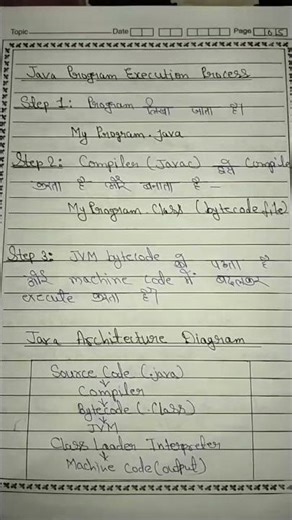 Topic Date Page 105
Java Program Execution Process
Step 1: Program लिखा जाता है।
My Program.java
Step 2: Compiler (Javac) इसे Compile
करता है और बनाता है –
My Program.Class (bytecode file)
Step 3: JVM bytecode को पढ़ता है
और machine code में बदलकर
execute करता है।
Java Architecture Diagram
Source Code (.java)
↓
Compiler
↓
Bytecode (.Class)
↓
JVM
Class Loader Interpreter
↓
Machine Code (output)